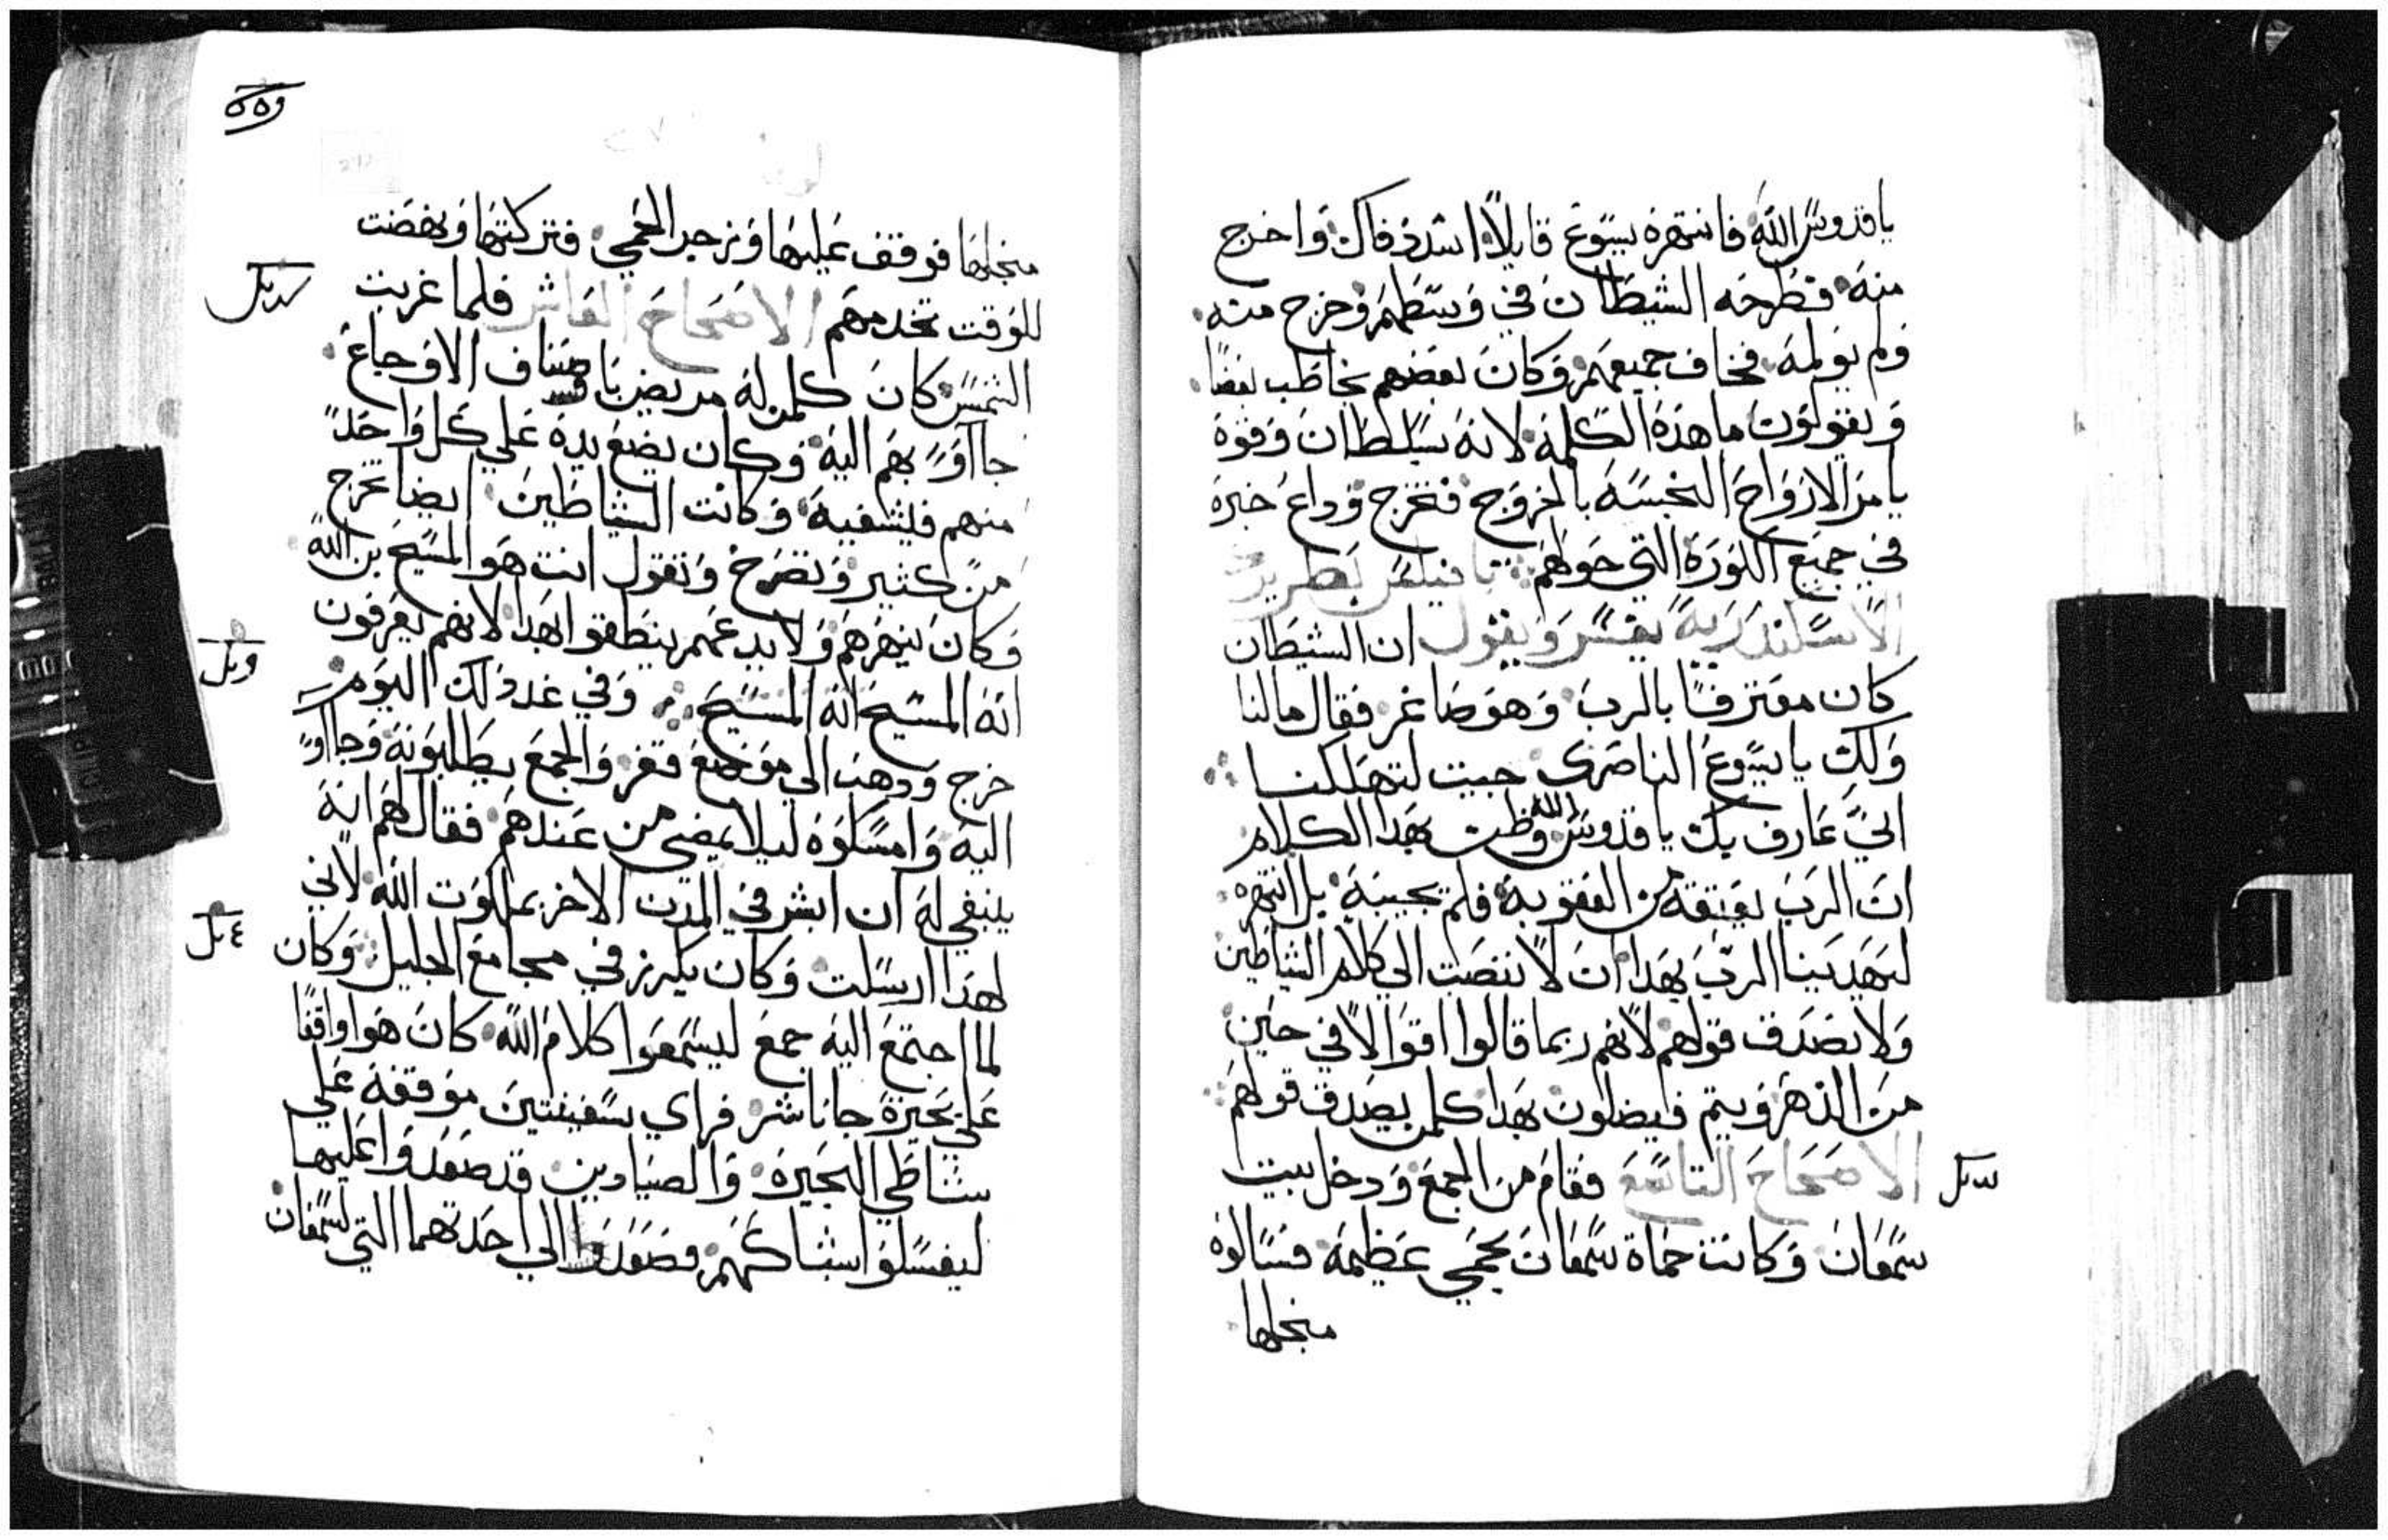 ياقدوس الله فانتهره يسوع قايلا اسدد فاك واخرج
منه فطرحه الشيطان في وسطهم وخرج منه
ولم يولمه فخاف جميعهم وكان بعضهم يخاطب بعضا
ويقولون ما هذه الكلمة لانه بسلطان وقوة
يامر الارواح النجسة بالخروج فتخرج وداع خبره
في جميع الكورة التي حولهم
الاسكندرية يفسر ويقول ان الشيطان
كان معترفا بالرب وهو صاغر فقال مالنا
ولك يايسوع الناصرى جيت لتهلكنا
اني عارف بك ياقدوس الله وظن بهدا الكلام
ان الرب يعتقه من العقوبة فلم يجيبه بل انتهره
ليهدينا الرب بهدا ان لا ننصت الي كلام الشياطين
ولا نصدق قولهم لانهم ربما قالوا اقوالا في حين
من الدهر ويتم فيضلون بهدا كلمن يصدق قولهم
الاصحاح التاسع فقام من المجمع ودخل بيت
سمعان وكانت حماة سمعان بحمي عظيمة فسالوه
منجلها
منجلها فوقف عليها وزجر الحمي فتركتها ونهضت
للوقت تخدمهم الاصحاح العاشر فلما غربت
الشمس كان كلمن له مريض باصناف الاوجاع
جااو بهم اليه وكان يضع يده علي كل واحد
منهم فيشفيه وكانت الشياطين ايضا تخرج
من كثير وتصرخ وتقول انت هو المسيح بن الله
وكان ينهرهم ولا يدعهم ينطقوا بهدا لانهم يعرفون
انه المسيح انه المسيح وفي غد دلك اليوم
خرج ودهب الي موضع قفر والجمع يطلبونه وجااو
اليه وامسكوه ليلا يمضي من عندهم فقال لهم انه
ينبغي له ان ابشر في المدن الاخر بملكوت الله لاني
لهدا ارسلت وكان يكرز في مجامع الجليل وكان
لما اجتمع اليه جمع ليسمعوا كلام الله كان هو واقفا
علي بحيرة جاناشر فراي سفينتين موقفة علي
شاطي البحيرة والصيادين قد صعدوا عليها
ليغسلوا شباكهم فصعد الي احدتهما التي لسمعان